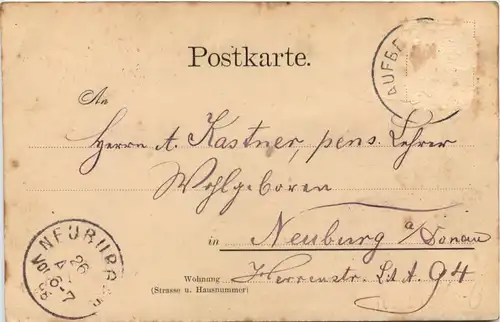 Postkarte.
AUFB
An
Herrn A. Kastner, pens. Lehrer
Wohlgeboren
in Neuburg a/Donau
Wohnung Herrenstr. Lit A 94
(Strasse u. Hausnummer)
NEUBURG
26